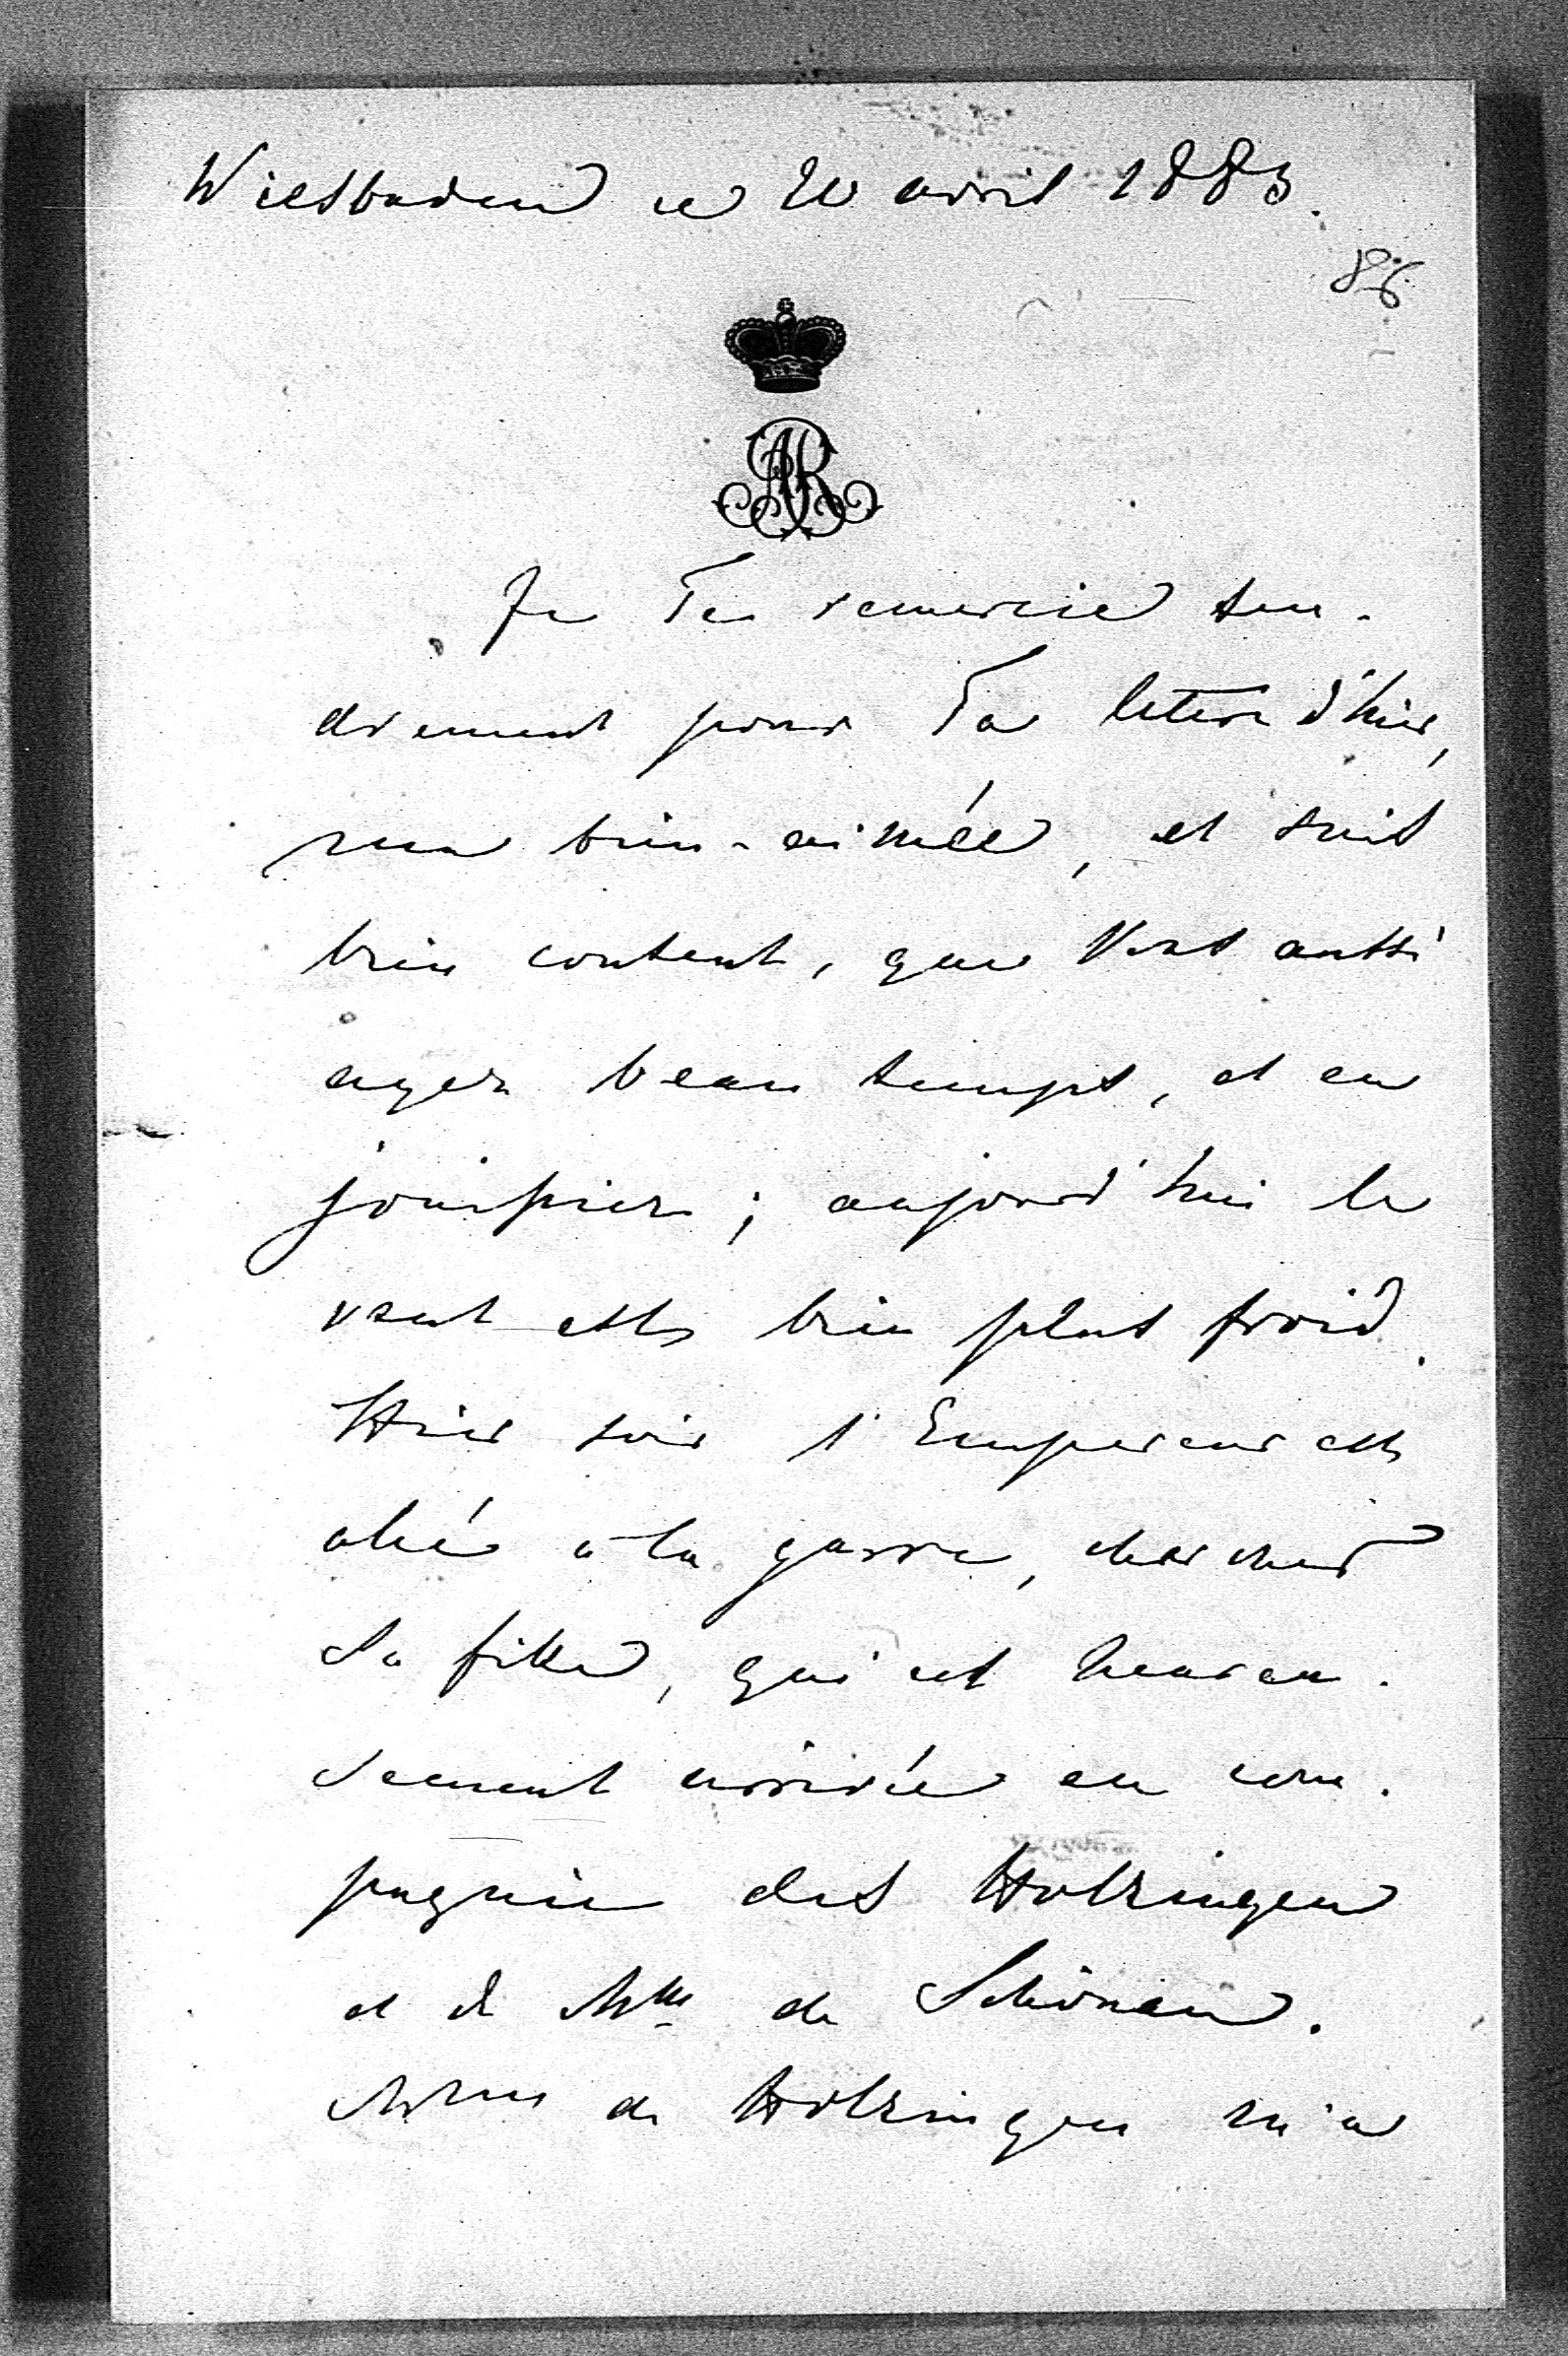 Wiesbaden ce 20 avril 1883.
86
AR
Je Te remercie ten-
drement pour Ta lettre d'hier,
ma bien-aimée, et suis
bien content, que Vous aussi
ayez beau temps, et en
jouissiez; aujourd'hui le
vent est bien plus froid.
Hier soir l'Empereur est
allé à la garre, chercher
Sa fille, qui est heureu-
sement arrivée en com-
pagnie des Holzingen
et de Mlle de Schönau.
Mme de Holzingen m'a